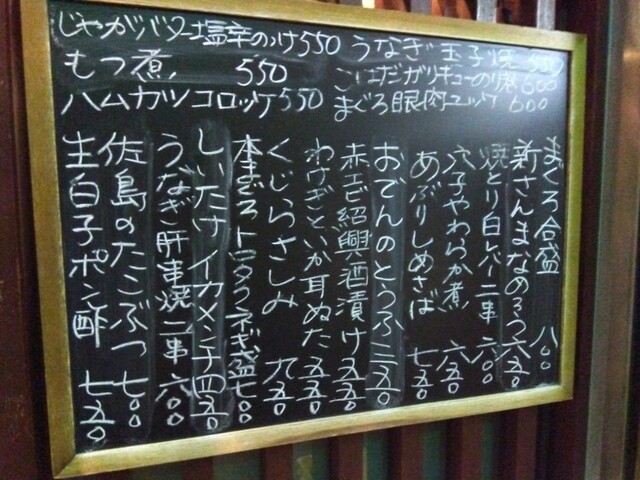 じゃがバター塩辛のっけ550
もつ煮 550
ハムカツコロッケ550
うなぎ玉子焼 550
こはだガリキューの磯 600
まぐろ眼肉ユッケ 600
まぐろ合盛 八〇〇
新さんまなめろう 六五〇
焼とり白レバー二串 六〇〇
穴子やわらか煮 六五〇
あぶりしめさば 七五〇
おでんのとうふ 二五〇
赤エビ紹興酒漬け 五五〇
わけぎといか耳ぬた 五五〇
くじらさしみ 九五〇
本まぐろトロタクネギ盛 七〇〇
しいたけイカメンチ 四五〇
うなぎ肝串焼二串 六〇〇
佐島のたこぶつ 七〇〇
生白子ポン酢 七五〇